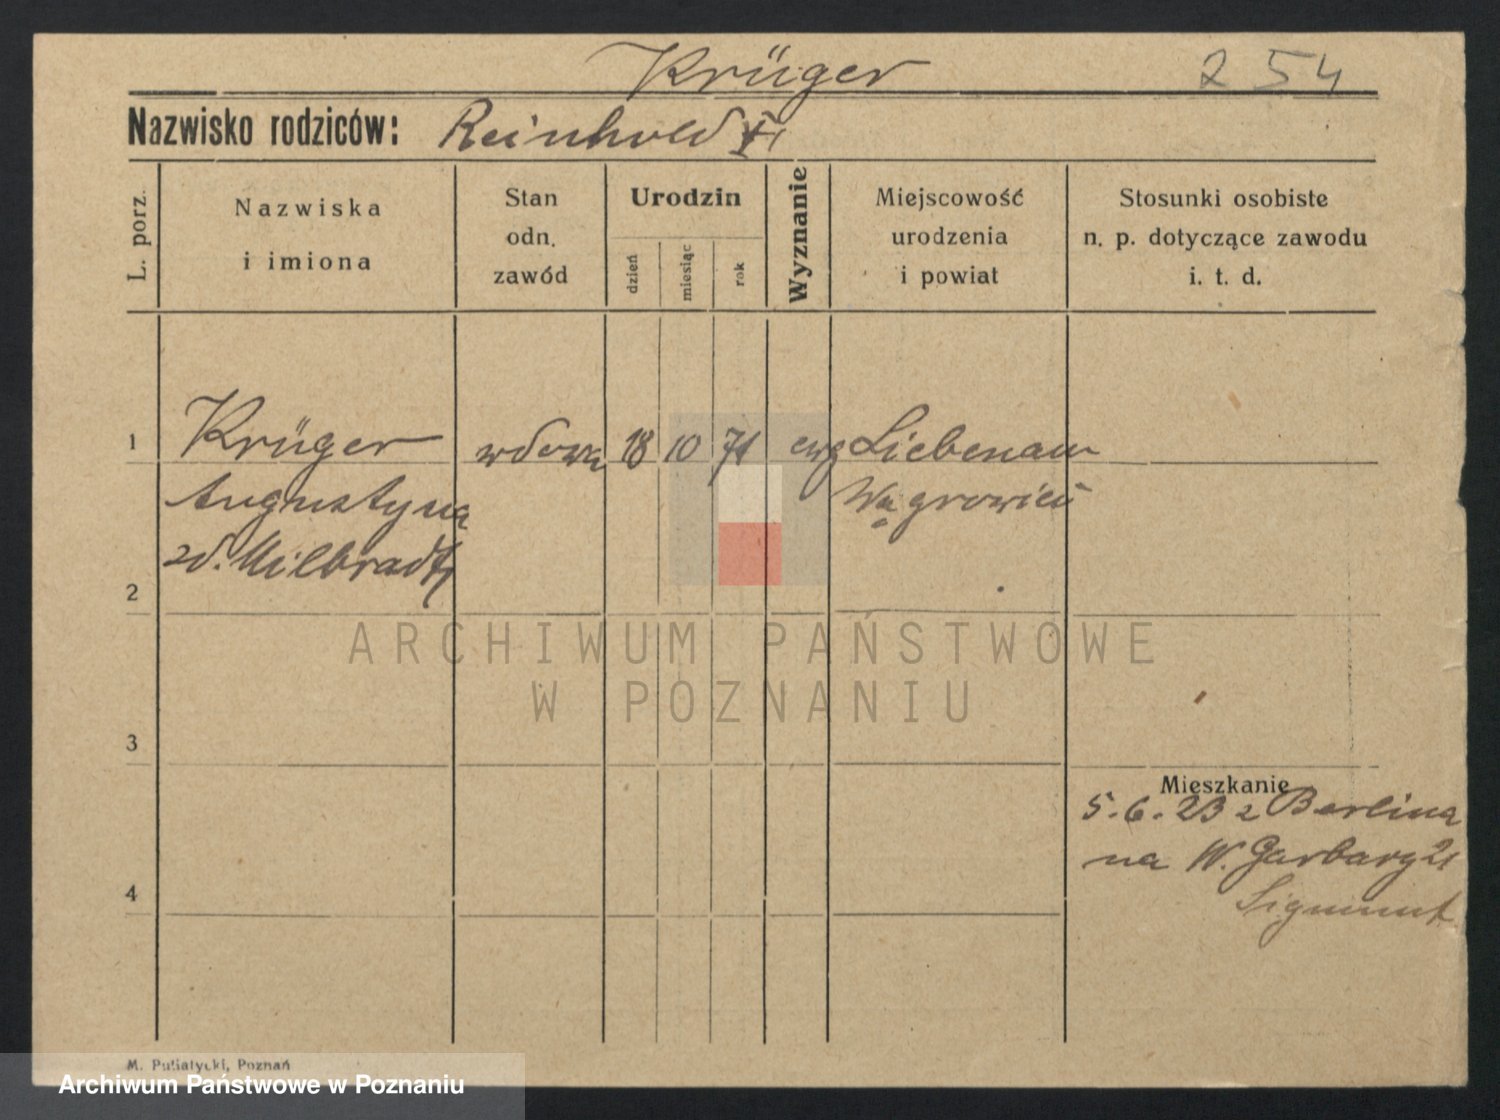 Krüger
254
Nazwisko rodziców: Reinhold
L. porz.
Nazwiska
i imiona
Stan
odn.
zawód
Urodzin
dzień
miesiąc
rok
Wyznanie
Miejscowość
urodzenia
i powiat
Stosunki osobiste
n. p. dotyczące zawodu
i. t. d.
1 Krüger wdowa 18 10 71 ewg Liebenau
Augustyna Wągrowiec
zd. Milbradt
2
ARCHIWUM PAŃSTWOWE
W POZNANIU
3
Mieszkanie
5.6.23 z Berlina
na W. Garbary 21
4
Sigmunt
M. Putiatycki, Poznań
Archiwum Państwowe w Poznaniu